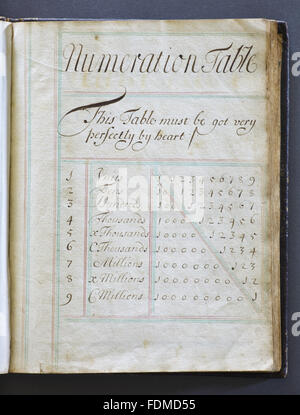 Numeration Table
This Table must be got very
perfectly by heart
1 Units 1 2 3 4 5 6 7 8 9
2 Tens 1 0 1 2 3 4 5 6 7 8
3 1 0 0 1 2 3 4 5 6 7
4 Thousands 1 0 0 0 1 2 3 4 5 6
5 x Thousands 1 0 0 0 0 1 2 3 4 5
6 C Thousands 1 0 0 0 0 0 1 2 3 4
7 Millions 1 0 0 0 0 0 0 1 2 3
8 x Millions 1 0 0 0 0 0 0 0 1 2
9 C Millions 1 0 0 0 0 0 0 0 0 1
a
alamy stock photo
FDMD55